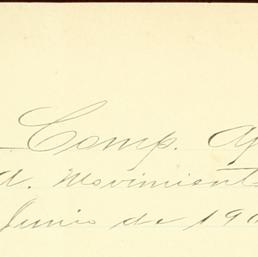 Comp. Ap
d. Movimient
Junio de 190